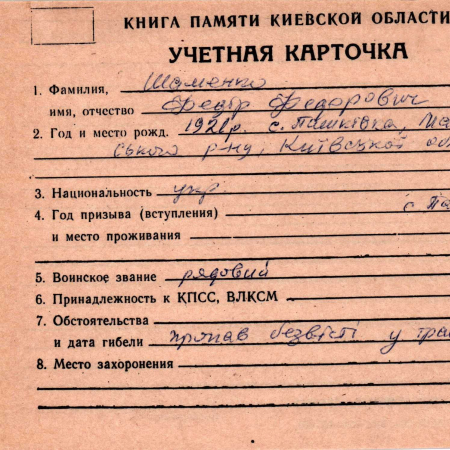 КНИГА ПАМЯТИ КИЕВСКОЙ ОБЛАСТИ
УЧЕТНАЯ КАРТОЧКА
1. Фамилия, Шаменко
имя, отчество Федір Федорович
2. Год и место рожд. 1921р. с. Пашківка, Ма
ського р-ну, Київської об
3. Национальность укр.
4. Год призыва (вступления)
с Па
и место проживания
5. Воинское звание рядовий
6. Принадлежность к КПСС, ВЛКСМ
7. Обстоятельства
и дата гибели пропав безвісті у тра
8. Место захоронения